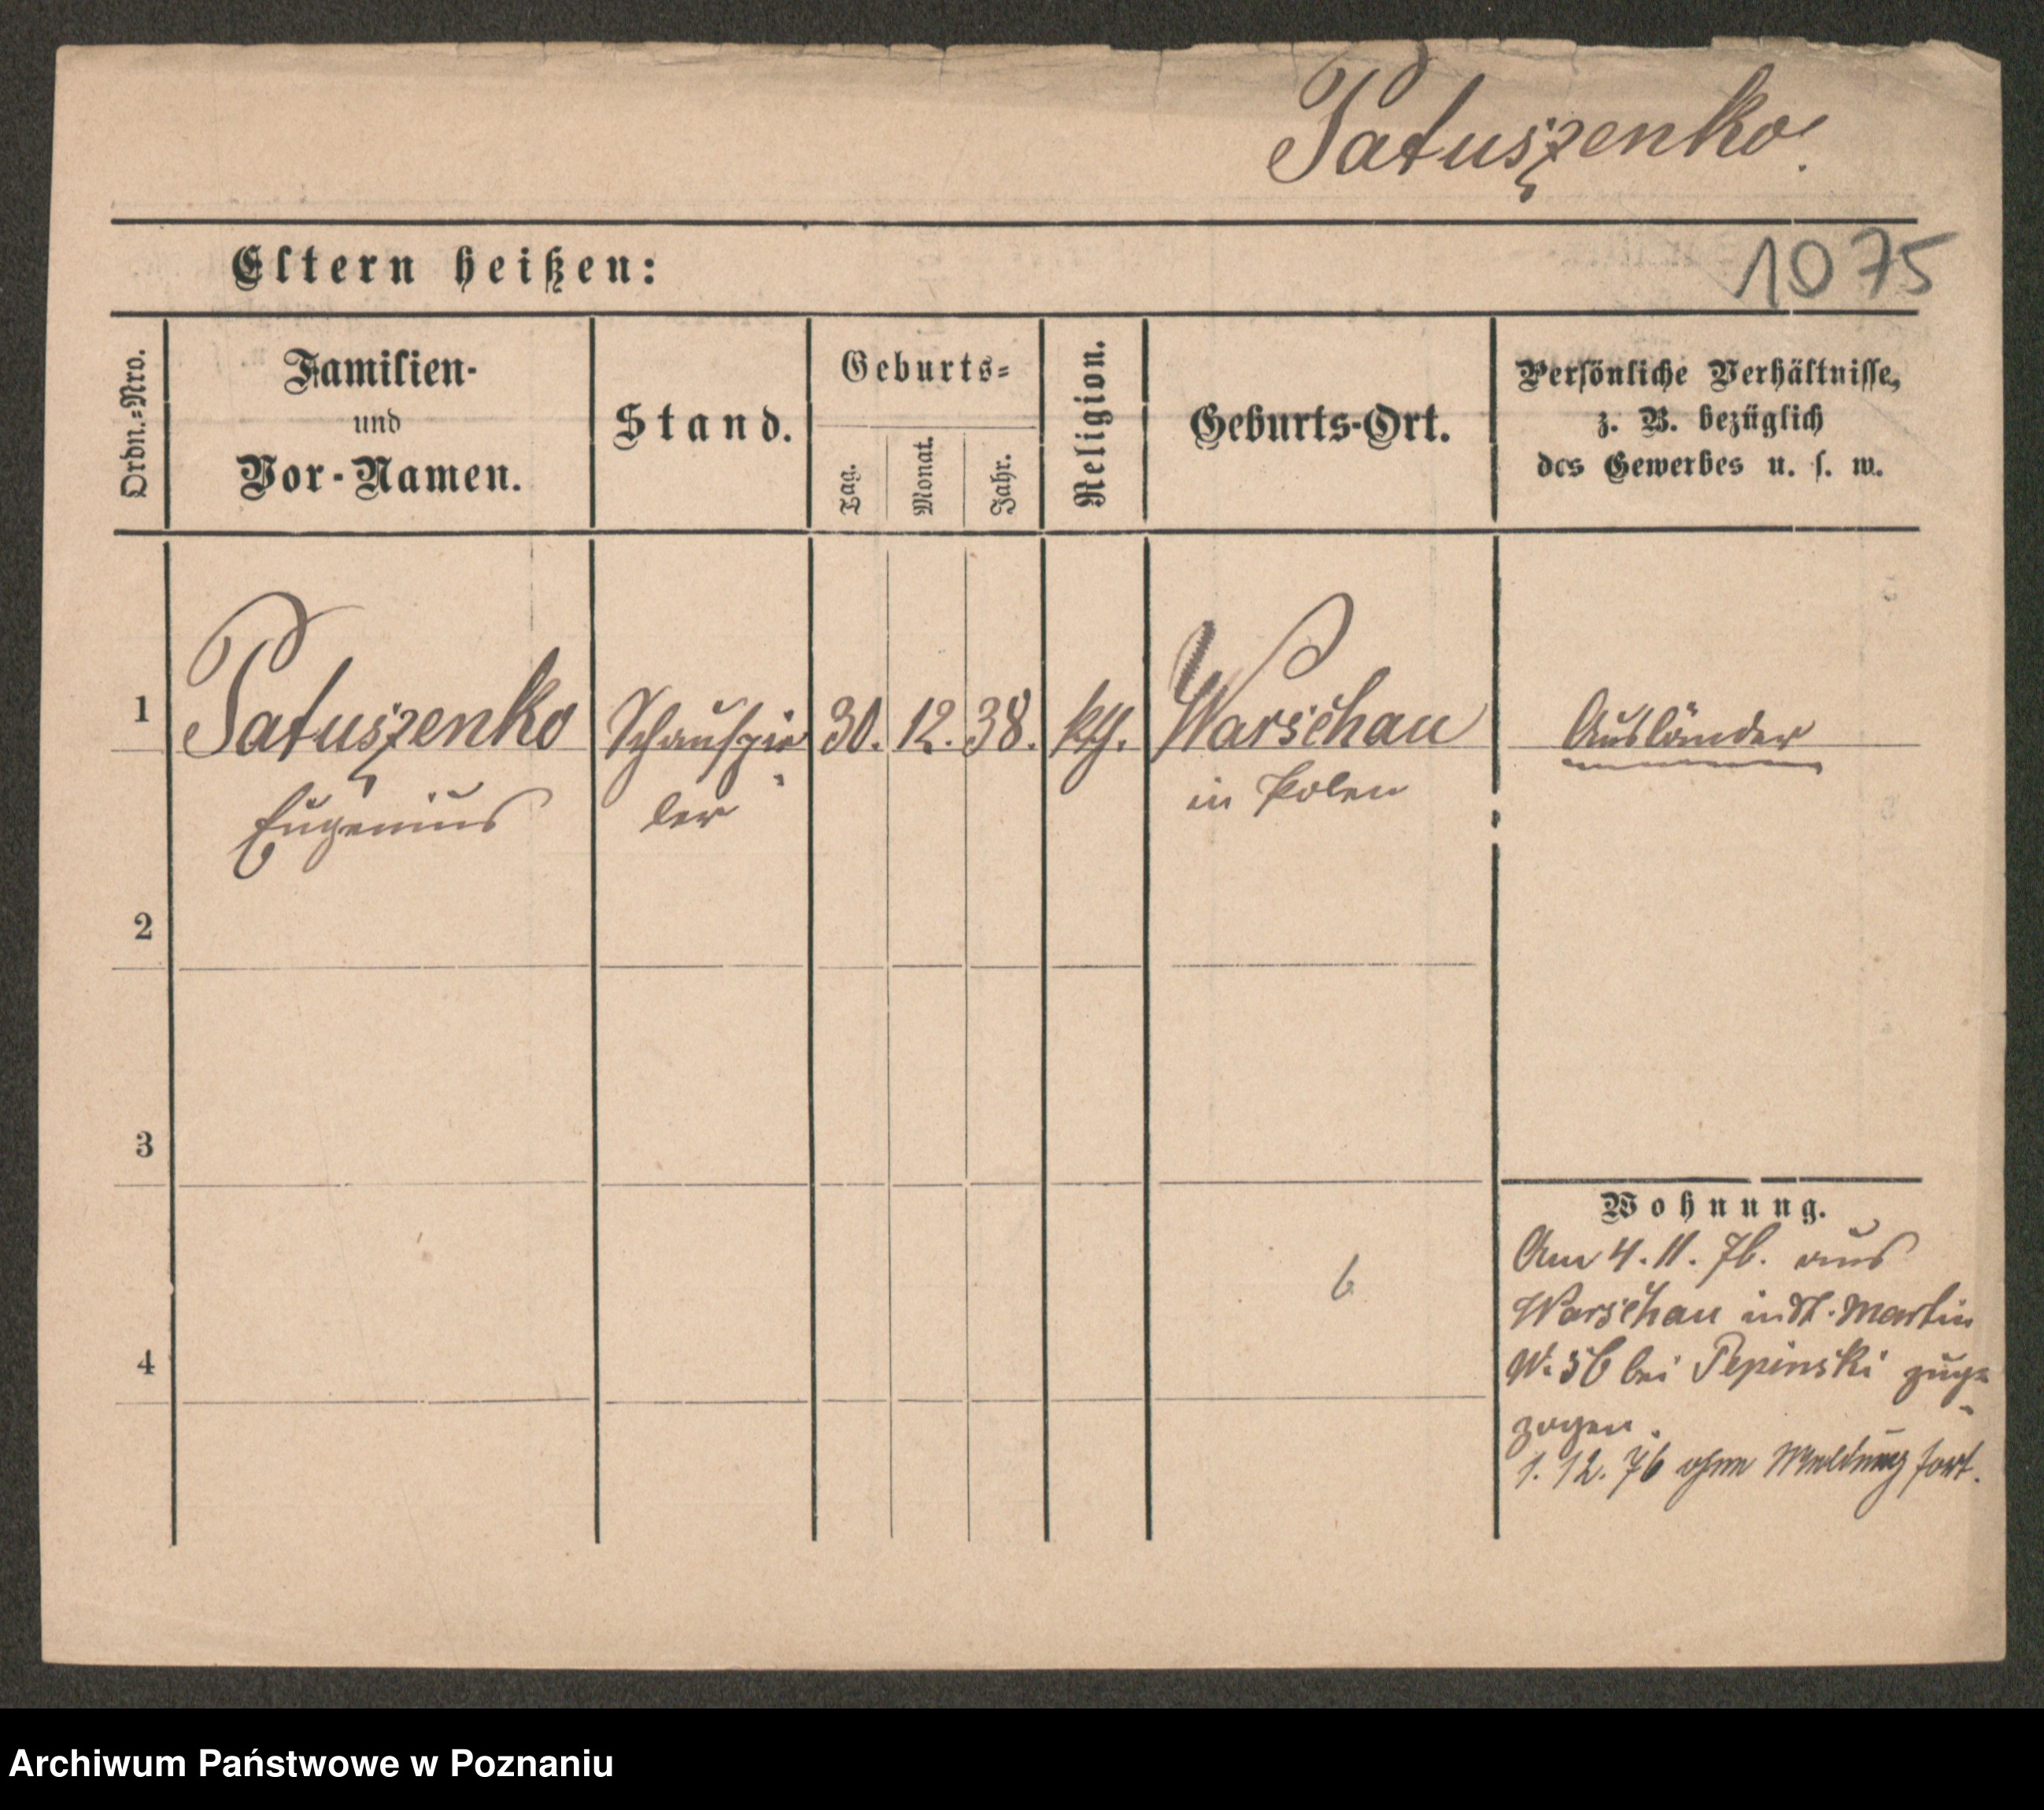 Patuszenko.
Eltern heißen:
1075
Ordn.=Nro.
Familien-
und
Vor-Namen.
Stand.
Geburts=
Tag.
Monat.
Jahr.
Religion.
Geburts-Ort.
Persönliche Verhältnisse,
z. B. bezüglich
des Gewerbes u. s. w.
1 Patuszenko Schauspie 30. 12. 38. kth. Warschau Ausländer
Eugenius ler in Polen
2
3
4
Wohnung.
Am 4. 11. 76. aus
Warschau in St. Martin
N. 56 bei Pepinski zuge
zogen.
1. 12. 76 ohne Meldung fort.
6
Archiwum Państwowe w Poznaniu